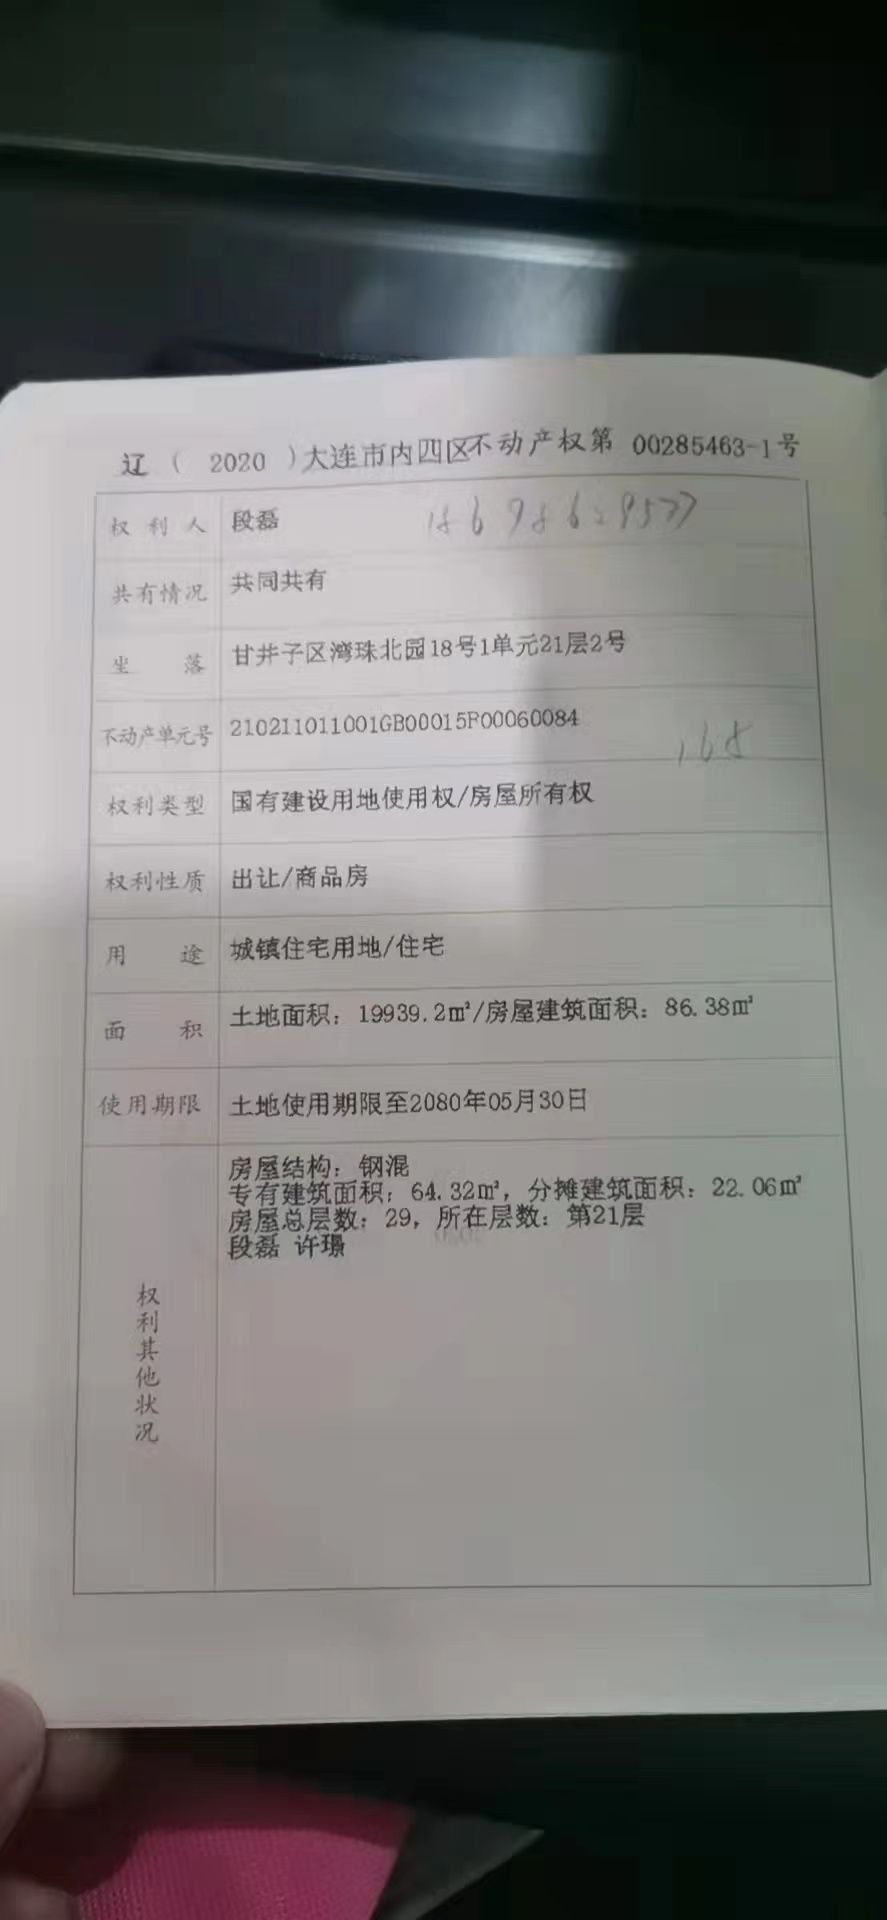 辽（2020）大连市内四区不动产权第 00285463-1号
权利人 段磊
共有情况 共同共有
坐落 甘井子区湾珠北园18号1单元21层2号
不动产单元号 210211011001GB00015F00060084
权利类型 国有建设用地使用权/房屋所有权
权利性质 出让/商品房
用途 城镇住宅用地/住宅
面积 土地面积：19939.2㎡/房屋建筑面积：86.38㎡
使用期限 土地使用期限至2080年05月30日
权利其他状况
房屋结构：钢混
专有建筑面积：64.32㎡，分摊建筑面积：22.06㎡
房屋总层数：29，所在层数：第21层
段磊 许璟